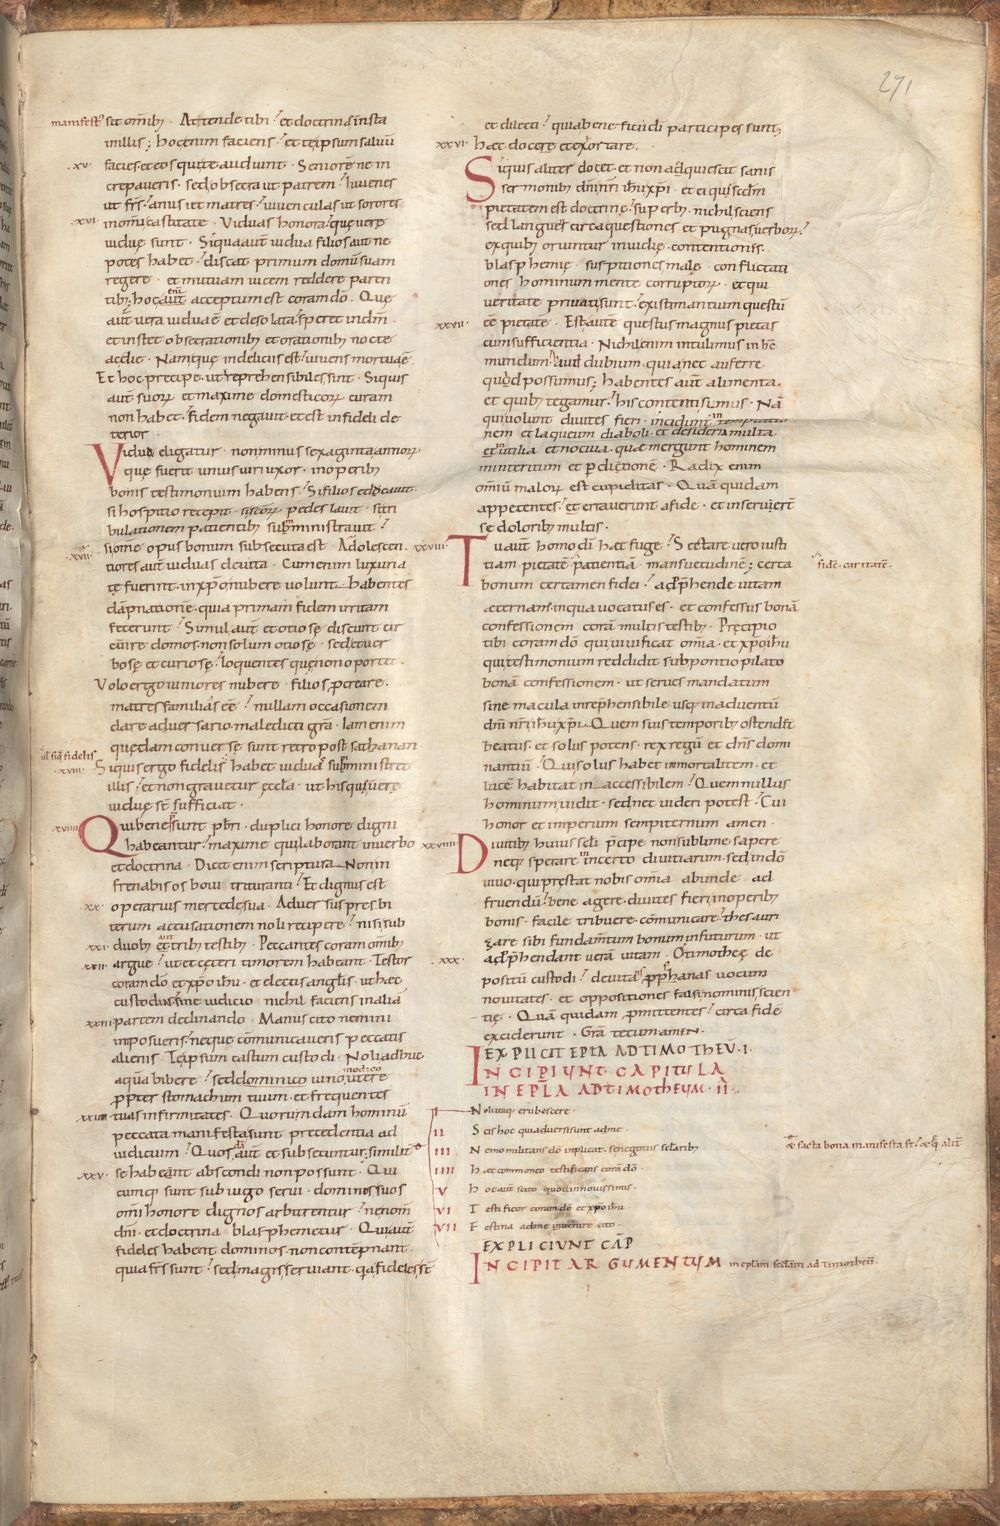 271
manifest᷒ sit omĩbꝫ · Attende tibi · et doctrinæ insta
inillis; hoc enim faciens · et teipsum saluũ
·xv· facies · et eos qui te audiunt · Seniorẽ ne in
crepaueris · sed obsecra ut patrem · iuuenes
ut fr̃s · anus ut matres · iuuenculas ut sorores
·xvi· inom̃i castitate · Viduas honora · quę uere
uiduę sunt · Siqua aut̃ uidua filios aut ne
potes habet · discat primum domũ suam
regere · et mutuam uicem reddere paren
tibꝫ; hoc enĩ acceptum est coram dõ · Quę
aut̃ uera uidua ẽ et desolata · speret in dm̃ ·
et instet obsecrationibꝫ et orationibꝫ nocte
ac die · Nam quę in deliciis est · uiuens mortua ẽ ·
Et hoc precipe · ut inreprehensibiles sint · Siquis
aut̃ suoꝝ et maxime domesticoꝝ curam
non habet · fidem negauit · et est infideli de
terior ·
Vidua eligatur · non minus sexaginta annoꝝ
quę fuerit unius uiri uxor · in operibꝫ
bonis testimonium habens · Si filios educauit ·
si hospitio recepit · si scoꝝ pedes lauit · si tri
bulationem patientibꝫ subministrauit ·
·xvii· si om̃e opus bonum subsecuta est · Adolescen
tiores aut̃ uiduas deuita · Cum enim luxuria
tę fuerint · in xp̃o nubere uolunt · habentes
dãpnationẽ · quia primam fidem irritam
fecerunt · Simul aut̃ et otiosę discunt cir
cuire domos · non solum otiosę · sed et uer
bosę et curiosę · loquentes quę non oportet ·
Volo ergo iuniores nubere · filios ꝓcreare ·
matres familias eẽ · nullam occasionem
dare aduersario maledicti grã · Iam enim
quędam conuersę sunt retro post sathanan
ul siq̃ fidelis
·xviii· Siquis ergo fidelis habet uiduas subministret
illis · et non grauetur ęccła · ut his quę uere
uiduę st̃ sufficiat ·
·xviiii· Qui bene p̃sunt pb̃ri · duplici honore digni
habeantur · maxime qui laborant in uerbo
et doctrina · Dicit enim scriptura · Non in
frenabis os boui trituranti · Et dignus est
·xx· operarius mercede sua · Aduersus presbi
terum accusationem noli recipere · nisi sub
·xxi· duobꝫ aut tribꝫ testibꝫ · Peccantes coram omĩbꝫ
·xxii· argue · ut et ceteri timorem habeant · Testor
coram dõ et xp̃o ihũ · et electis angl̃is · ut hæc
custodias sine iudicio · nichil faciens in aliã
·xxiii· partem declinando · Manus cito nemini
imposueris · neque cõmunicaueris peccatis
alienis · Teipsum castum custodi · Noli adhuc
aquã bibere · sed modico uino utere
ꝓpter stomachum tuum · et frequentes
·xxiiii· tuas infirmitates · Quorundam hominũ
peccata manifesta sunt precedentia ad
iudicium · Quosdã aut̃ et subsecuntur; similit̃
·xxv· se habeant abscondi non possunt · Qui
cumqꝫ sunt sub iugo serui · dominos suos
om̃i honore dignos arbitrentur · ne nom̃
dñi · et doctrina blasphemetur · Qui aut̃
fideles habent dominos · non contẽpnant ·
quia fr̃s sunt · sed magis seruiant · q̃a fideles st̃
et dilecti · quia beneficii di participes sunt;
·xxvi· hæc docere et exhortare ·
Siquis aliter docet · et non adquiescit sanis
sermonibꝫ dñi nri ihũ xp̃i · et ei qui scdm̃
pietatem est doctrinę · superbꝫ · nichil sciens
sed languet circa questiones et pugnas uerboꝝ ·
ex quibꝫ oriuntur inuidię · contentiones ·
blasphemię · suspitiones malę · conflictati
ones hominum mente corruptoꝝ · et qui
ueritate priuati sunt · existimantium questũ
·xxvii· eẽ pietatẽ · Est autẽ questus magnus pietas
cum sufficientia · Nichil enim intulimus in hc̃
mundum · haut dubium · quia nec auferre
quod possumus; habentes aut̃ alimenta ·
et quibꝫ tegamur · his contenti simus · Nã
qui uolunt diuites fieri · incidunt in temptatio
nem et laqueum diaboli · et desideria multa
et inutilia et nociua · quæ mergunt hominem
in interitum et ꝑditionẽ · Radix enim
omiũ maloꝝ est cupiditas · Quã quidam
appetentes · et errauerunt a fide · et inseruer̃t
se doloribꝫ multis ·
·xxviii· Tu aut̃ homo di hæc fuge · Sectare uero iusti
tiam · pietatẽ · patientiã · mansuetudinẽ; certa
fidẽ · caritatẽ ·
bonum certamen fidei · adp̃hende uitam
aeternam · in qua uocatus es · et confessus bonã
confessionem corã multis testibꝫ · Pręcipio
tibi coram dõ qui uiuificat om̃ia · et xp̃o ihũ
qui testimonium reddidit sub pontio pilato
bonã confessionem · ut serues mandatum
sine macula inrep̃hensibile usqꝫ in aduentũ
dñi nr̃i ihũ xp̃i · Quem suis temporibꝫ ostendet
beatus · et solus potens · rex regũ et dñs domi
nantiũ · Qui solus habet inmortalitem · et
lucẽ habitat in accessibilem · Quem nullus
hominum uidit · sed nec uideri potest · Cui
honor et imperium sempiternum amen ·
·xxviiii· Diuitibꝫ huius scłi p̃cipe non sublime sapere
neqꝫ sperare in incerto diuitiarum · sed in dõ
uiuo · qui pręstat nobis om̃ia abunde ad
fruendũ · bene agere · diuites fieri in operibꝫ
bonis · facile tribuere · cõmunicare · thesauri
zare sibi fundam̃tum bonum in futurum · ut
·xxx· adp̃hendant uerã uitam · O timotheę de
positũ custodi · deuitans ꝓphanas uocum
nouitates · et oppositiones falsi nominis scien
tię · Quã quidam ꝓmittentes · circa fidẽ
exciderunt · Grã tecum amen ·
EXPLICIT EPLA AD TIMOTHEŨ · I ·
INCIPIUNT CAPITULA
IN EPLA AD TIMOTHEUM · II ·
I Noli itaqꝫ erubescere ·
II Scis hoc quia aduersi sunt a me ·
III Nemo militans dõ inplicat se negotiis seclaribꝫ
IIII Hæc commoneo testificans corã dõ ·
V Hoc aut̃ scito quod in nouissimis ·
VI Testificor coram dõ et xp̃o ihũ ·
VII Festina ad me uenire cito ·
et facta bona manifesta st̃ · et q̃ alit̃
EXPLICIUNT CAP̃
INCIPIT ARGUMENTUM in eplam scdam ad Timotheũ ·